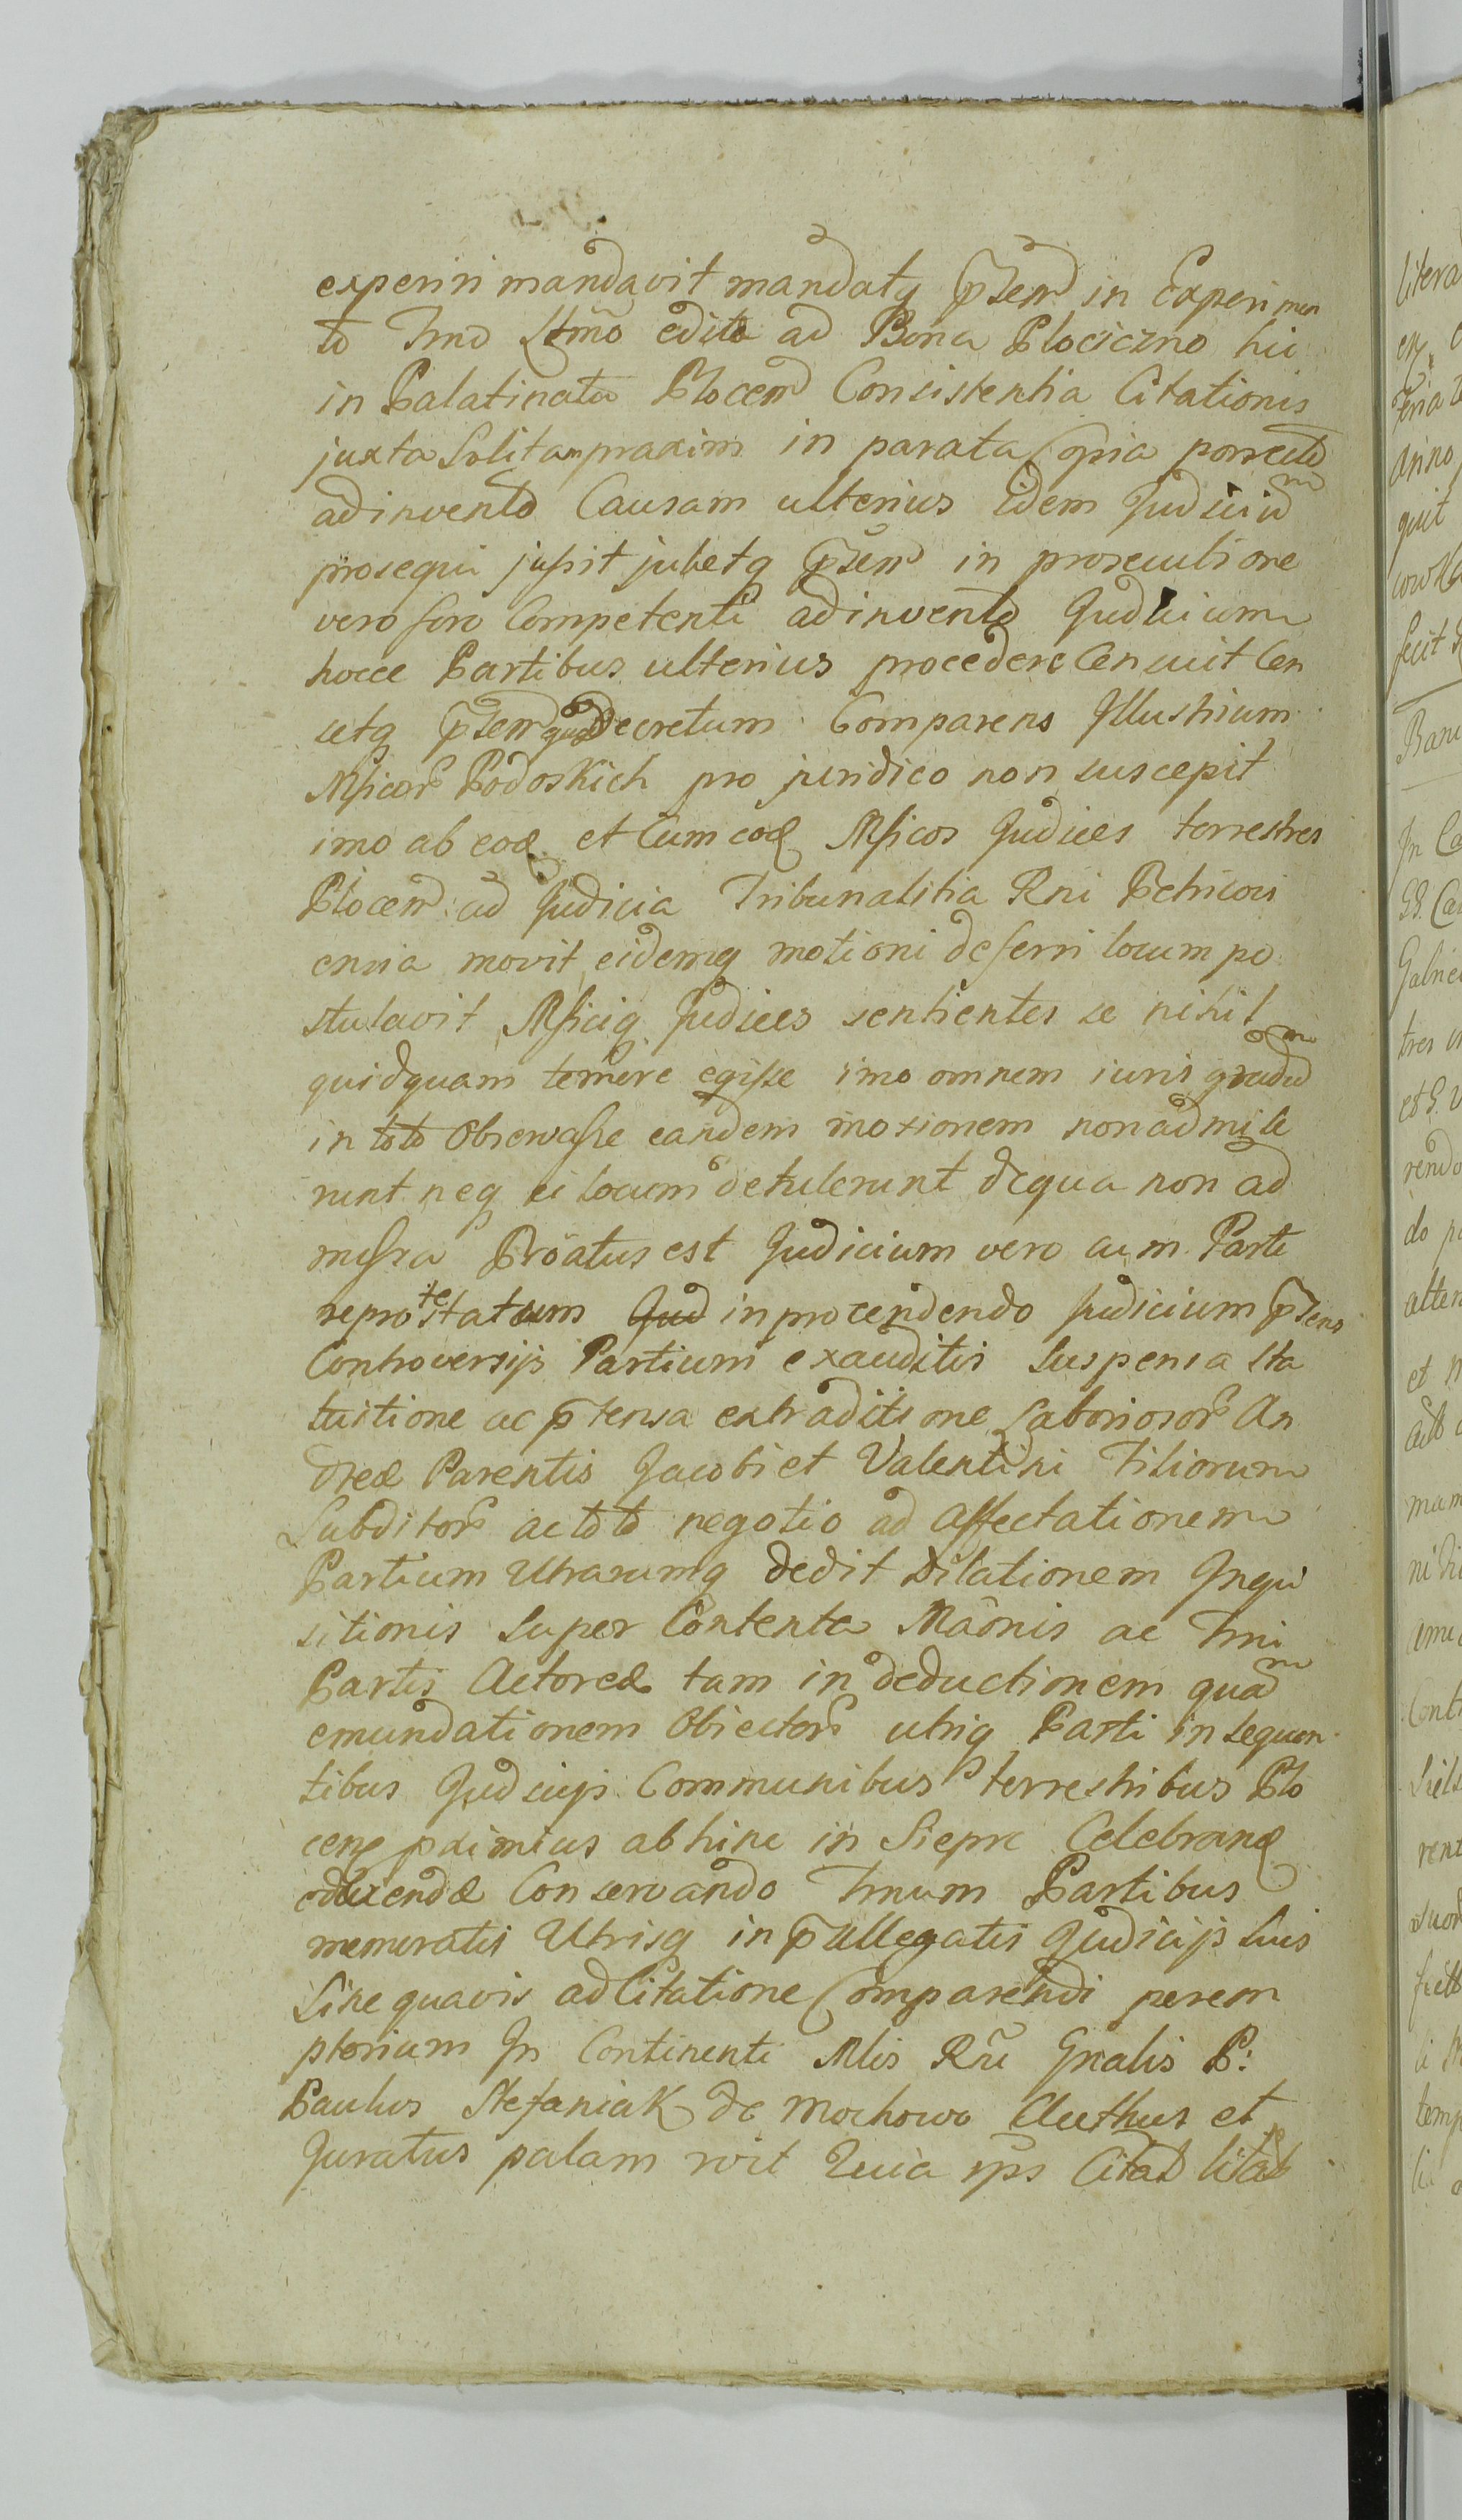 experiri mandavit mandatq p̃sen in Experimen
to Tmo Ltmõ edito ad Bona Plociczno hic
in Palatinatu Plocen Consistentia Citationis
juxta Solitam praxim in parata Copia porrecto
adinvento Causam ulterius idem Judiciu͂m
prosequi jussit jubetq p̃sen in prosecutione
vero foro Competenti adinvento Judicium
hocce Partibus ulterius procedere Censuit Cen
setq p̃sen quod Decretum Comparens Illustrium
Mficor Podoskich pro juridico non suscepit
imo ab eod et Cum eod Mficos Judices terrestres
Plocen ad Judicia Tribunalitia Rni Petricovi
ensia movit eidemq motioni deferri locum po
stulavit Mficiq Judices sentientes se nihil
quidquam temere egisse imo omnem iuris gradum
in toto Observasse eandem motionem non admise
runt neq ei locum detulerunt de qua non ad
missa Prõatus est Judicium vero cum Parte
reprotestatum Jud in procendendo Judicium p̃sens
Controversijs Partium exauditis Suspensa Sta
tuitione ac p̃tensa extraditione Laboriosor An
dreæ Parentis Jacobi et Valentini Filiorum
Subditor ac toto negotio ad affectationem
Partium Utrarumq dedit Dilationem Inqui
sitionis Super Contenta Mãonis ac Tmi
Partis Actoreæ tam in deductionem quam
emundationem Obiector utriq Parti in sequen
tibus Judicijs Communibus terrestribus Plo
cen pximius abhinc in Sieprc Celebrand
educendæ Conservando Tmum Partibus
memoratis Utrisq in p̃allegatis Judicijs Suis
Sine quavis adCitatione Comparendi perem
ptorium In Continenti Mlis Rñi Gnalis P:
Paulus Stefaniak de Mochowo Aucthus et
Juratus palam rvit Quia ips Citat litat